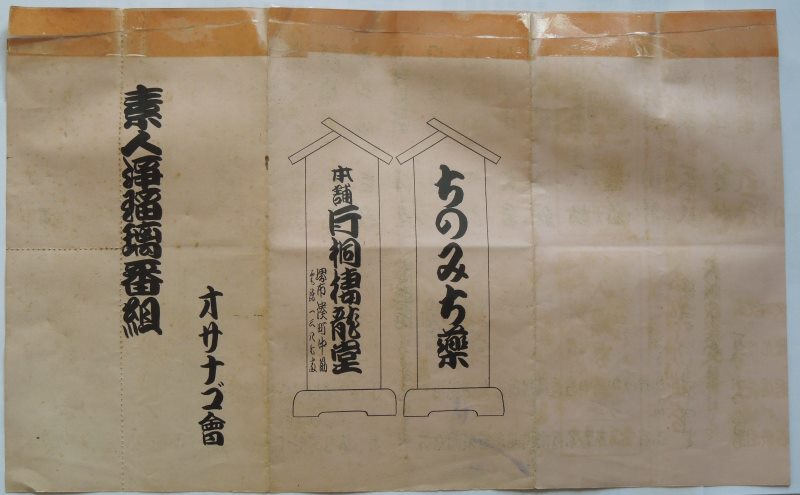 ちのみち藥
本舗 片桐棲龍堂
堺市湊町中筋
電話一
オサナゴ會
素人淨瑠璃番組